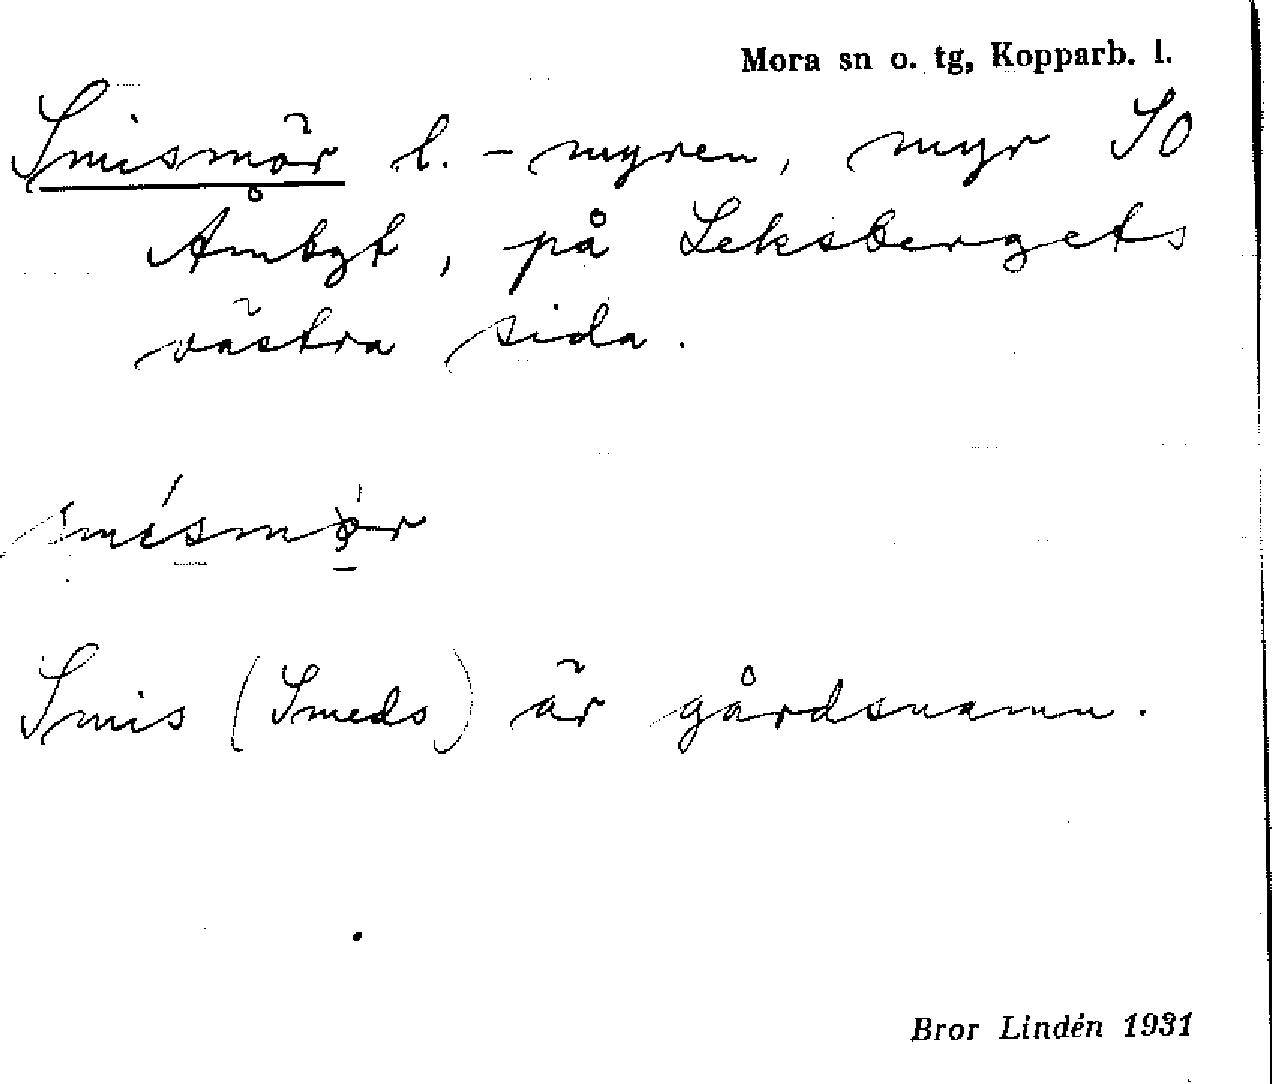 Mora sn o. tg, Kopparb. l.
Smismör l. - myren, myr SO
Åmbgt, på Leksbergets
västra sida.
Smis (Smeds) är gårdsnamn.
Bror Lindén 1931